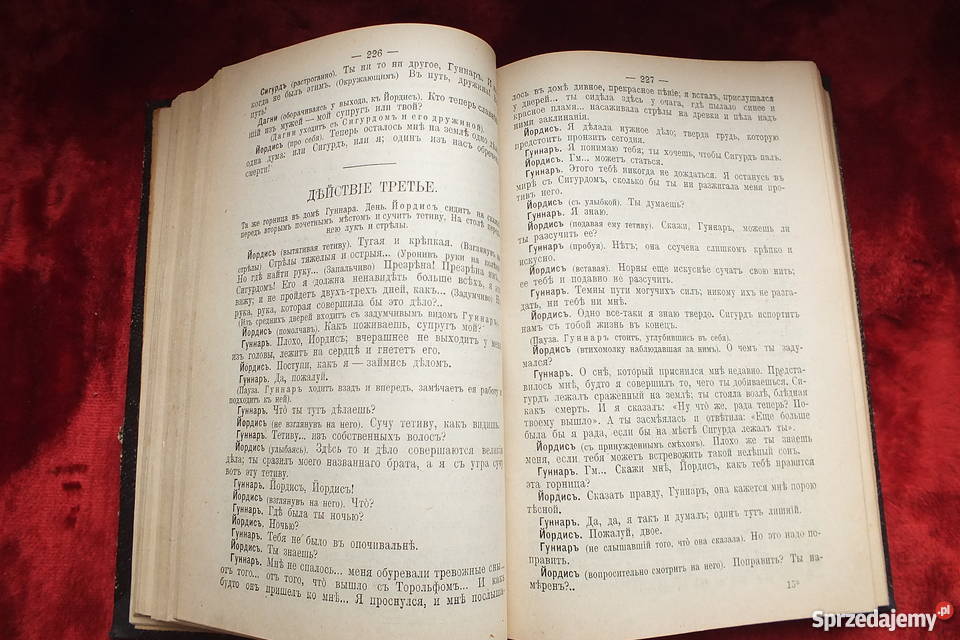 — 226 —
Сигурдъ (растроганно). Ты ни то ни другое, Гуннаръ, и
когда не былъ этимъ. (Окружающимъ) Въ путь, дружина!
путь!
Дагни (оборачиваясь у выхода, къ Йордисъ). Кто теперь
шій изъ мужей — мой супругъ или твой?
(Дагни уходитъ съ Сигурдомъ и его дружиной).
Йордисъ (про себя). Теперь осталось мнѣ на землѣ одно
одна дума: или Сигурдъ, или я; одинъ изъ насъ
смерти!
ДѢЙСТВІЕ ТРЕТЬЕ.
Та же горница въ домѣ Гуннара. День. Йордисъ сидитъ на
передъ вторымъ почетнымъ мѣстомъ и сучитъ тетиву. На столѣ
нею лукъ и стрѣлы.
Йордисъ (вытягивая тетиву). Тугая и крѣпкая. (Взглянувъ на
стрѣлы) Стрѣлы тяжелыя и острыя... (Уронивъ руки на
Но гдѣ найти руку... (Запальчиво) Презрѣна! Презрѣна
Сигурдомъ! Его я должна ненавидѣть больше всѣхъ, я
вижу; и не пройдетъ двухъ-трехъ дней, какъ... (Задумчиво)
рука, рука, которая совершила бы это дѣло?..
(Изъ среднихъ дверей входитъ съ задумчивымъ видомъ Гуннаръ.
Йордисъ (помолчавъ). Какъ поживаешь, супругъ мой?
Гуннаръ. Плохо, Йордисъ; вчерашнее не выходитъ у меня
изъ головы, лежитъ на сердцѣ и гнететъ его.
Йордисъ. Поступи, какъ я — займись дѣломъ.
Гуннаръ. Да, пожалуй.
(Пауза. Гуннаръ ходитъ взадъ и впередъ, замѣчаетъ ея работу и
подходитъ къ ней).
Гуннаръ. Что́ ты тутъ дѣлаешь?
Йордисъ (не взглянувъ на него). Сучу тетиву, какъ видишь.
Гуннаръ. Тетиву... изъ собственныхъ волосъ?
Йордисъ (улыбаясь). Здѣсь то и дѣло совершаются
дѣла; ты сразилъ моего названнаго брата, а я съ утра сучу
вотъ эту тетиву.
Гуннаръ. Йордисъ, Йордисъ!
Йордисъ (взглянувъ на него). Что́?
Гуннаръ. Гдѣ была ты ночью?
Йордисъ. Ночью?
Гуннаръ. Тебя не было въ опочивальнѣ.
Йордисъ. Ты знаешь?
Гуннаръ. Мнѣ не спалось... меня обуревали тревожные сны...
отъ того... отъ того, что́ вышло съ Торольфомъ... И какъ
будто онъ пришелъ ко мнѣ... Я проснулся, и мнѣ послыша-
— 227 —
лось въ домѣ дивное, прекрасное пѣніе; я всталъ, прислушался
у дверей... ты сидѣла здѣсь у очага, гдѣ пылало синее и
красное пламя... насаживала стрѣлы на древки и пѣла надъ
ними заклинанія.
Йордисъ. Я дѣлала нужное дѣло; тверда грудь, которую
предстоитъ пронзить сегодня.
Гуннаръ. Я понимаю тебя; ты хочешь, чтобы Сигурдъ палъ.
Йордисъ. Гм... можетъ статься.
Гуннаръ. Этого тебѣ никогда не дождаться. Я останусь въ
мирѣ съ Сигурдомъ, сколько бы ты ни разжигала меня про-
тивъ него.
Йордисъ (съ улыбкой). Ты думаешь?
Гуннаръ. Я знаю.
Йордисъ (подавая ему тетиву). Скажи, Гуннаръ, можешь ли
ты разсучить ее?
Гуннаръ (пробуя). Нѣтъ; она ссучена слишкомъ крѣпко и
искусно.
Йордисъ (вставая). Норны еще искуснѣе сучатъ свою нить;
ее тебѣ и подавно не разсучить.
Гуннаръ. Темны пути могучихъ силъ; никому ихъ не разга-
дать, ни тебѣ ни мнѣ.
Йордисъ. Одно все-таки я знаю твердо. Сигурдъ испортитъ
намъ съ тобой жизнь въ конецъ.
(Пауза. Гуннаръ стоитъ, углубившись въ себя).
Йордисъ (втихомолку наблюдавшая за нимъ). О чемъ ты заду-
мался?
Гуннаръ. О снѣ, который приснился мнѣ недавно. Предста-
вилось мнѣ, будто я совершилъ то, чего ты добиваешься. Си-
гурдъ лежалъ сраженный на землѣ; ты стояла возлѣ, блѣдная
какъ смерть. И я сказалъ: «Ну что́ же, рада теперь? По-
твоему вышло». А ты засмѣялась и отвѣтила: «Еще больше
была бы я рада, если бы на мѣстѣ Сигурда лежалъ ты».
Йордисъ (съ принужденнымъ смѣхомъ). Плохо же ты знаешь
меня, если тебя можетъ встревожить такой нелѣпый сонъ.
Гуннаръ. Гм... Скажи мнѣ, Йордисъ, какъ тебѣ нравится
эта горница?
Йордисъ. Сказать правду, Гуннаръ, она кажется мнѣ порою
тѣсной.
Гуннаръ. Да, да, я такъ и думалъ; одинъ тутъ лишній.
Йордисъ. Пожалуй, двое.
Гуннаръ (не слышавшій того, что́ она сказала). Но это надо по-
править.
Йордисъ (вопросительно смотритъ на него). Поправить? Ты на-
мѣренъ?..
15*
Sprzedajemy.pl